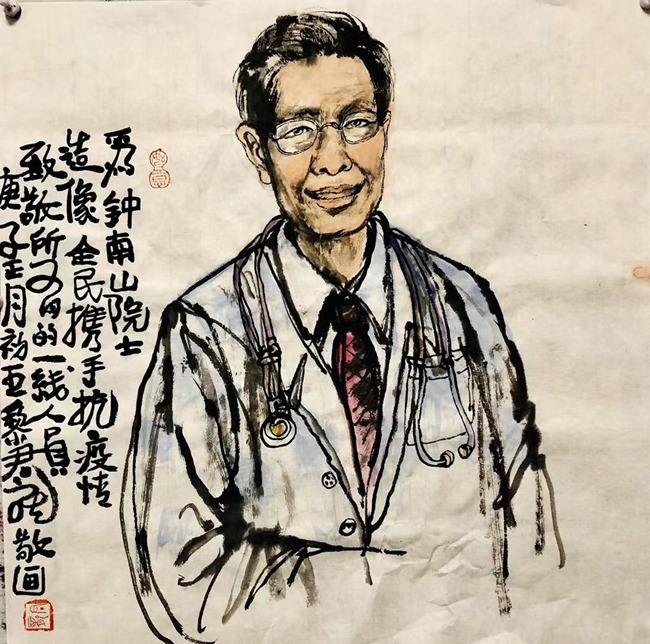 为钟南山院士
造像 全民携手抗疫情
致敬所有的一线人员
庚子正月初五 敬画